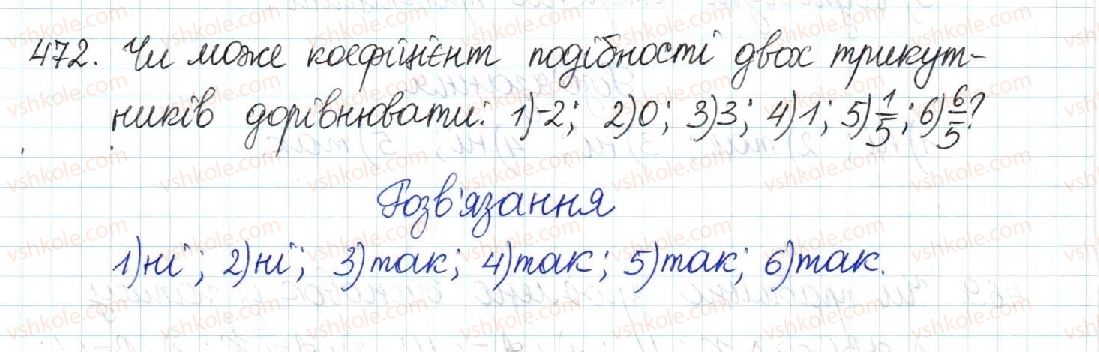 472. Чи може коефіцієнт подібності двох трикут-
ників дорівнювати: 1) -2; 2) 0; 3) 3; 4) 1; 5) 1/5; 6) 6/5?
Розв'язання
1) ні; 2) ні; 3) так; 4) так; 5) так; 6) так.